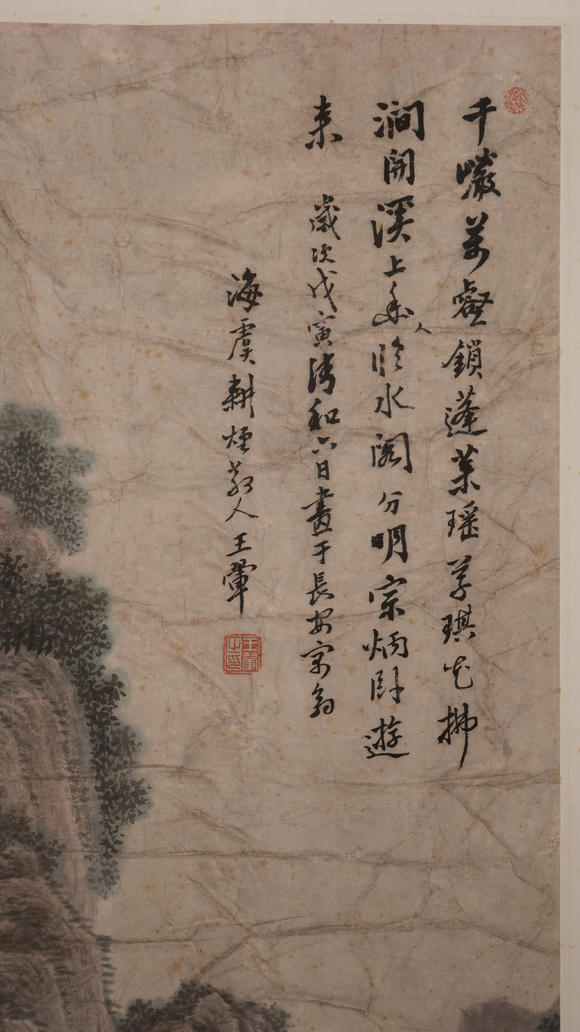 千巖萬壑鎖蓬萊瑤草琪花拂
澗開溪上人臨水閣分明宗炳臥遊
來 歲次戊寅清和六日畫于長安寓
海虞耕煙散人王翬
王翬之印